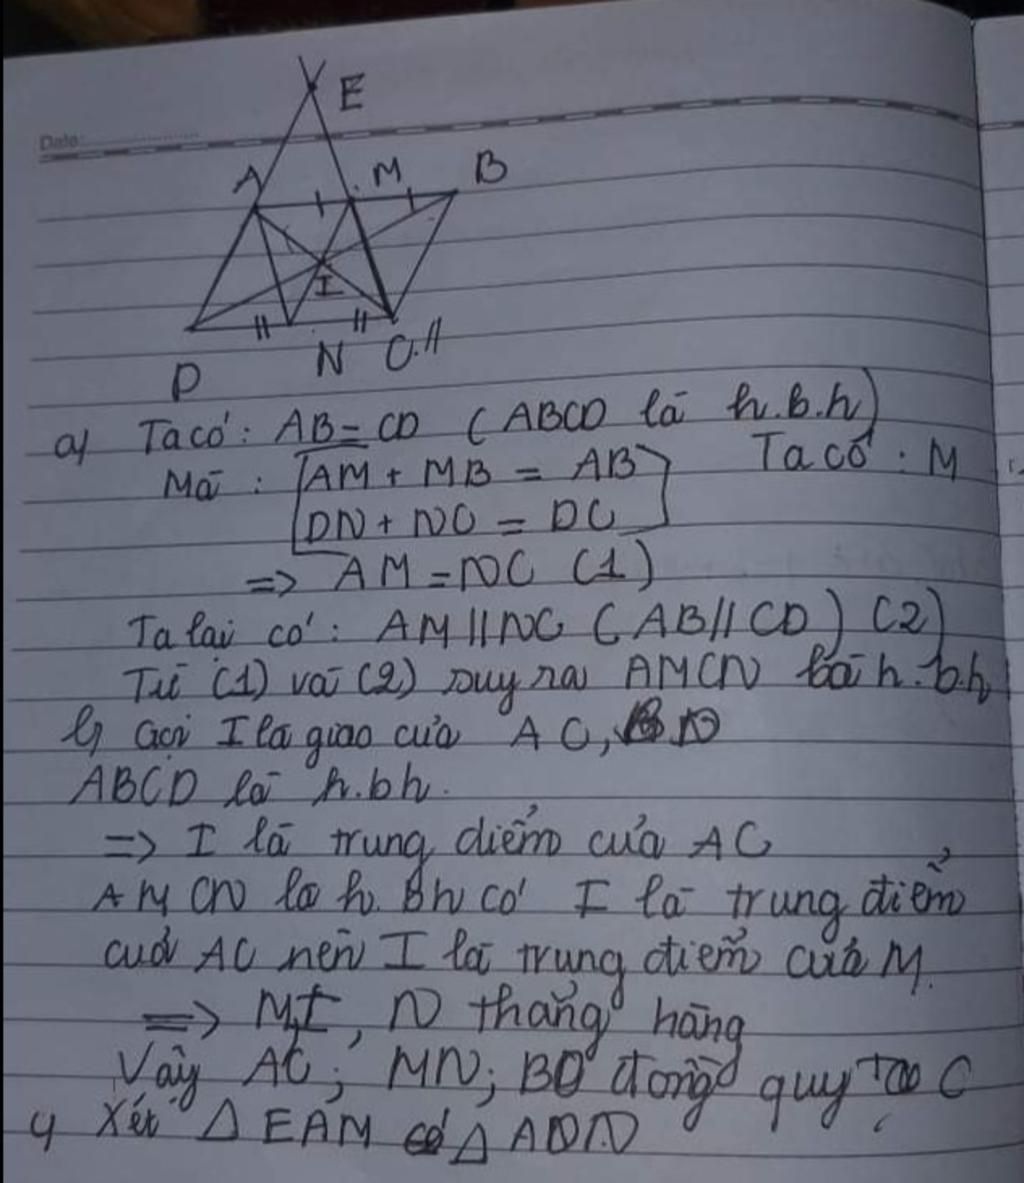 Date:
E
A
M
B
I
D
N
C
a) Ta có: AB = CD (ABCD là h.b.h)
Mà : AM + MB = AB
Ta có : M
DN + NC = DC
=> AM = NC (1)
Ta lại có: AM // NC (AB // CD) (2)
Từ (1) và (2) suy ra AMCN là h.b.h
b) Gọi I là giao của AC, BD
ABCD là h.bh.
=> I là trung điểm của AC
AMCN là h.Bh có I là trung điểm
của AC nên I là trung điểm của M.
=> M,I, N thẳng hàng
Vậy AC; MN; BD đồng quy tại C
c) Xét Δ EAM có Δ ADN